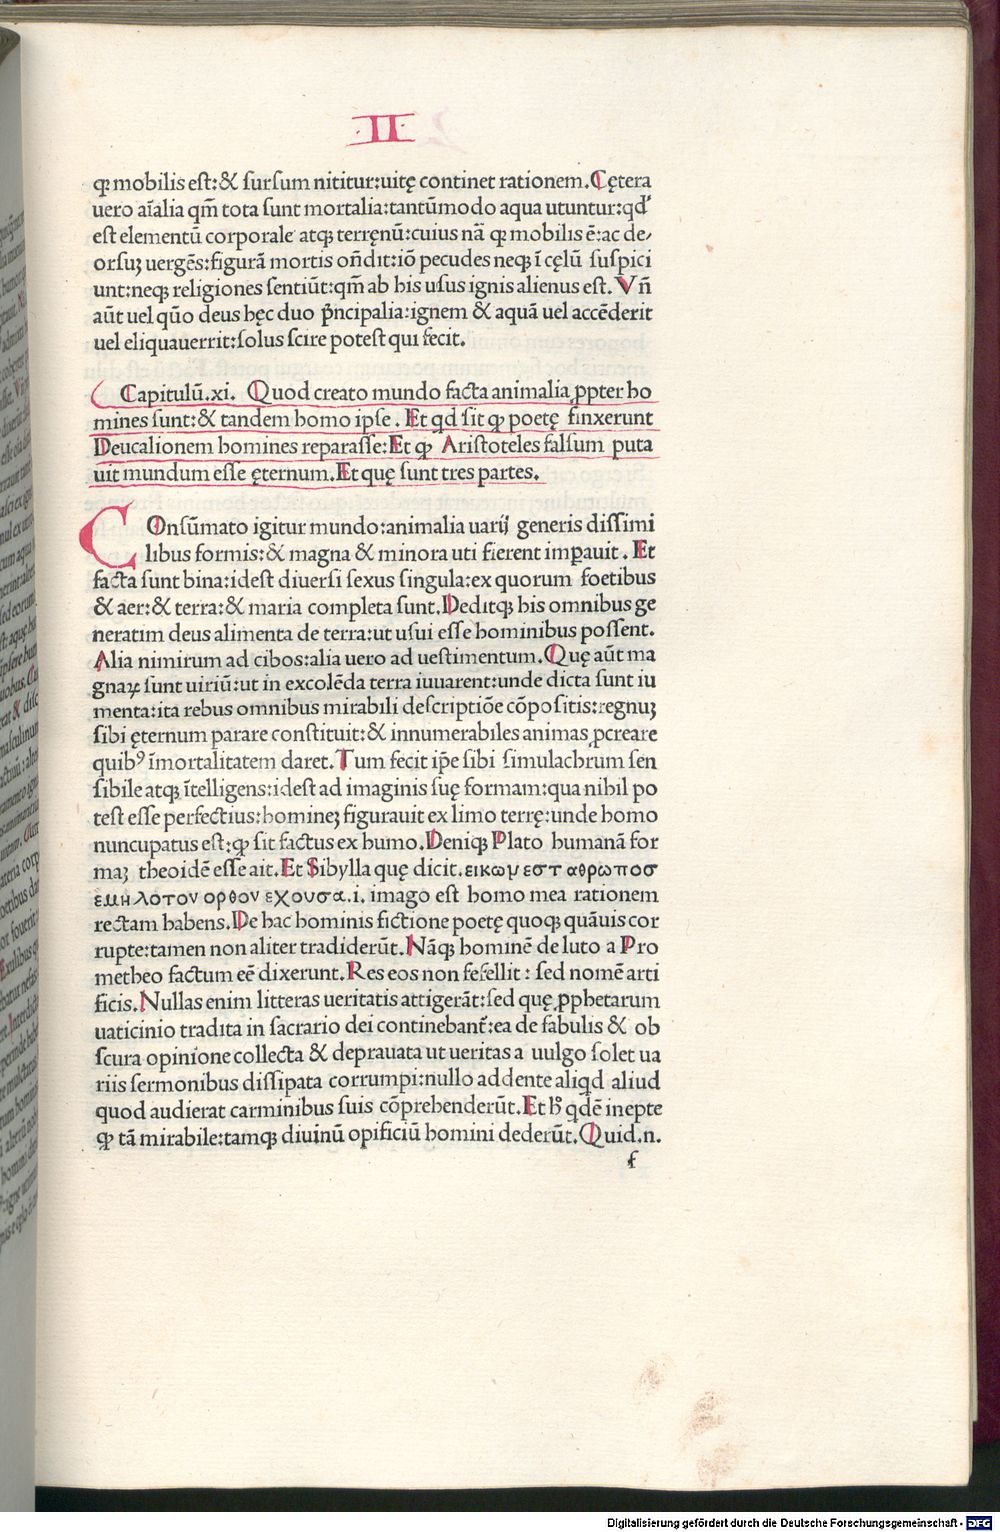 ·II·
ꝙ mobilis est:& sursum nititur:uitę continet rationem.Cętera
uero aīalia qm̄ tota sunt mortalia:tantūmodo aqua utuntur:qđ
est elementū corporale atqꝫ terręnū:cuius nā ꝙ mobilis ē:ac de⸗
orsuꝫ uergēs:figurā mortis oñdit:iō pecudes neqꝫ ī cęlū suspici
unt:neqꝫ religiones sentiūt:qm̄ ab his usus ignis alienus est.Vñ
aūt uel quō deus hęc duo p̄ncipalia:ignem & aquā uel accēderit
uel eliquauerrit:solus scire potest qui fecit.
Capitulū.xi. Quod creato mundo facta animalia ꝓpter ho
mines sunt:& tandem homo ipse. Et qd sit ꝙ poetę finxerunt
Deucalionem homines reparasse:Et ꝙ Aristoteles falsum puta
uit mundum esse ęternum.Et quę sunt tres partes.
COnsūmato igitur mundo:animalia uarij generis dissimi
libus formis:& magna & minora uti fierent imꝑauit. Et
facta sunt bina:idest diuersi sexus singula:ex quorum foetibus
& aer:& terra:& maria completa sunt.Deditqꝫ his omnibus ge
neratim deus alimenta de terra:ut usui esse hominibus possent.
Alia nimirum ad cibos:alia uero ad uestimentum.Quę aūt ma
gnaꝝ sunt uiriū:ut in excolēda terra iuuarent:unde dicta sunt iu
menta:ita rebus omnibus mirabili descriptiōe cōpositis:regnuꝫ
sibi ęternum parare constituit:& innumerabiles animas ꝓcreare
quibꝰ īmortalitatem daret.Tum fecit ip̄e sibi simulachrum sen
sibile atqꝫ ītelligens:idest ad imaginis suę formam:qua nihil po
test esse perfectius:homineꝫ figurauit ex limo terrę:unde homo
nuncupatus est:ꝙ sit factus ex humo.Deniqꝫ Plato humanā for
maꝫ theoidē esse ait.Et Sibylla quę dicit.εικωμ εστ αθρωποσ
εμη λοτον ορθον εχουσα.i. imago est homo mea rationem
rectam habens.De hac hominis fictione poetę quoqꝫ quāuis cor
rupte:tamen non aliter tradiderūt.Nāqꝫ hominē de luto a Pro
metheo factum eē dixerunt.Res eos non fefellit: sed nomē arti
ficis.Nullas enim litteras ueritatis attigerāt:sed quę ꝓphetarum
uaticinio tradita in sacrario dei continebant᷑:ea de fabulis & ob
scura opinione collecta & deprauata ut ueritas a uulgo solet ua
riis sermonibus dissipata corrumpi:nullo addente aliqd aliud
quod audierat carminibus suis cōprehenderūt.Et h̊ qdē inepte
ꝙ tā mirabile:tamqꝫ diuinū opificiū homini dederūt.Quid.n.
f
Digitalisierung gefördert durch die Deutsche Forschungsgemeinschaft - DFG